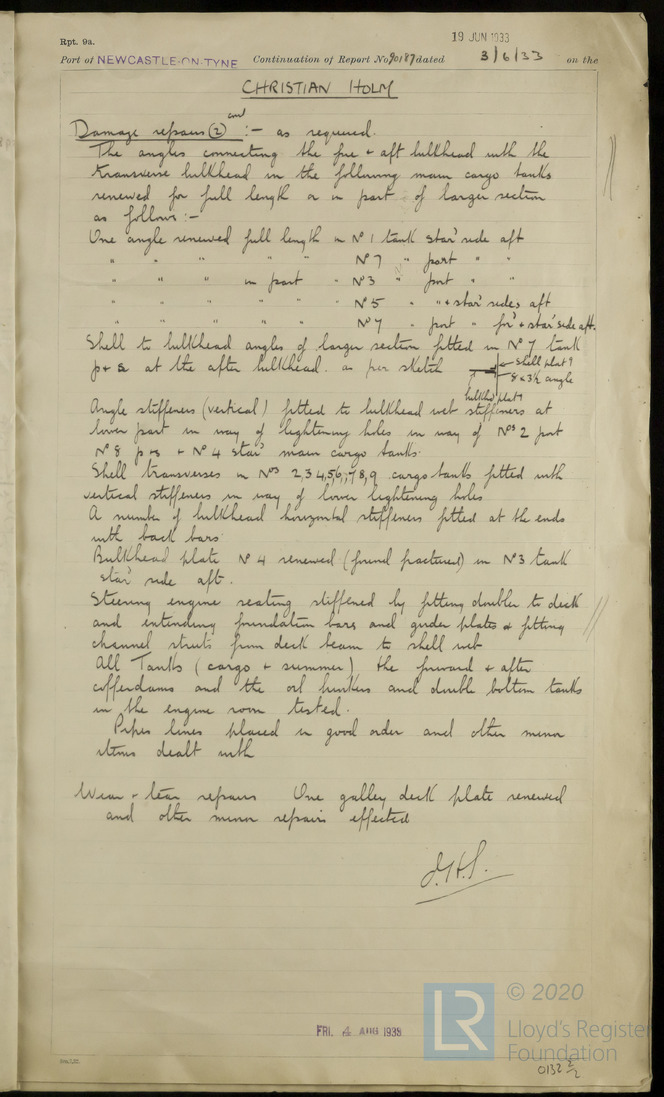 19 JUN 1933
Rpt. 9a.
Port of NEWCASTLE-ON-TYNE Continuation of Report No 90187 dated 3/6/33 on the
CHRISTIAN HOLM
Damage repairs (2) cont :- as required.
The angles connecting the fore & aft bulkhead with the
transverse bulkhead in the following main cargo tanks
renewed for full length or in part of larger section
as follows :-
One angle renewed full length in No 1 tank star' side aft
" " " " " No 7 " port " "
" " " in part " No 3 " port " "
" " " " " " No 5 " " & star' sides aft
" " " " " No 7 " port " for' & star' side aft.
Shell to bulkhead angles of larger section fitted in No 7 tank
p & s at the after bulkhead. as per sketch
shell plat'g
8 x 3½ angle
bulkhd plat'g
Angle stiffeners (vertical) fitted to bulkhead web stiffeners at
lower part in way of lightening holes in way of Nos 2 port
No 8 p & s & No 4 star' main cargo tanks.
Shell transverses in Nos 2,3,4,5,6,7,8,9 cargo tanks fitted with
vertical stiffeners in way of lower lightening holes
A number of bulkhead horizontal stiffeners fitted at the ends
with back bars.
Bulkhead plate No 4 renewed (found fractured) in No 3 tank
star' side aft.
Steering engine seating stiffened by fitting doubler to deck
and extending foundation bars and girder plates & fitting
channel struts from deck beam to shell web
All Tanks (cargo & summer) the forward & after
cofferdams and the oil bunkers and double bottom tanks
in the engine room tested.
Pipes lines placed in good order and other minor
items dealt with
Wear & tear repairs One galley deck plate renewed
and other minor repairs effected
FRI. 4 AUG 1933
LR
© 2020
Lloyd's Register
Foundation
0132 2/2